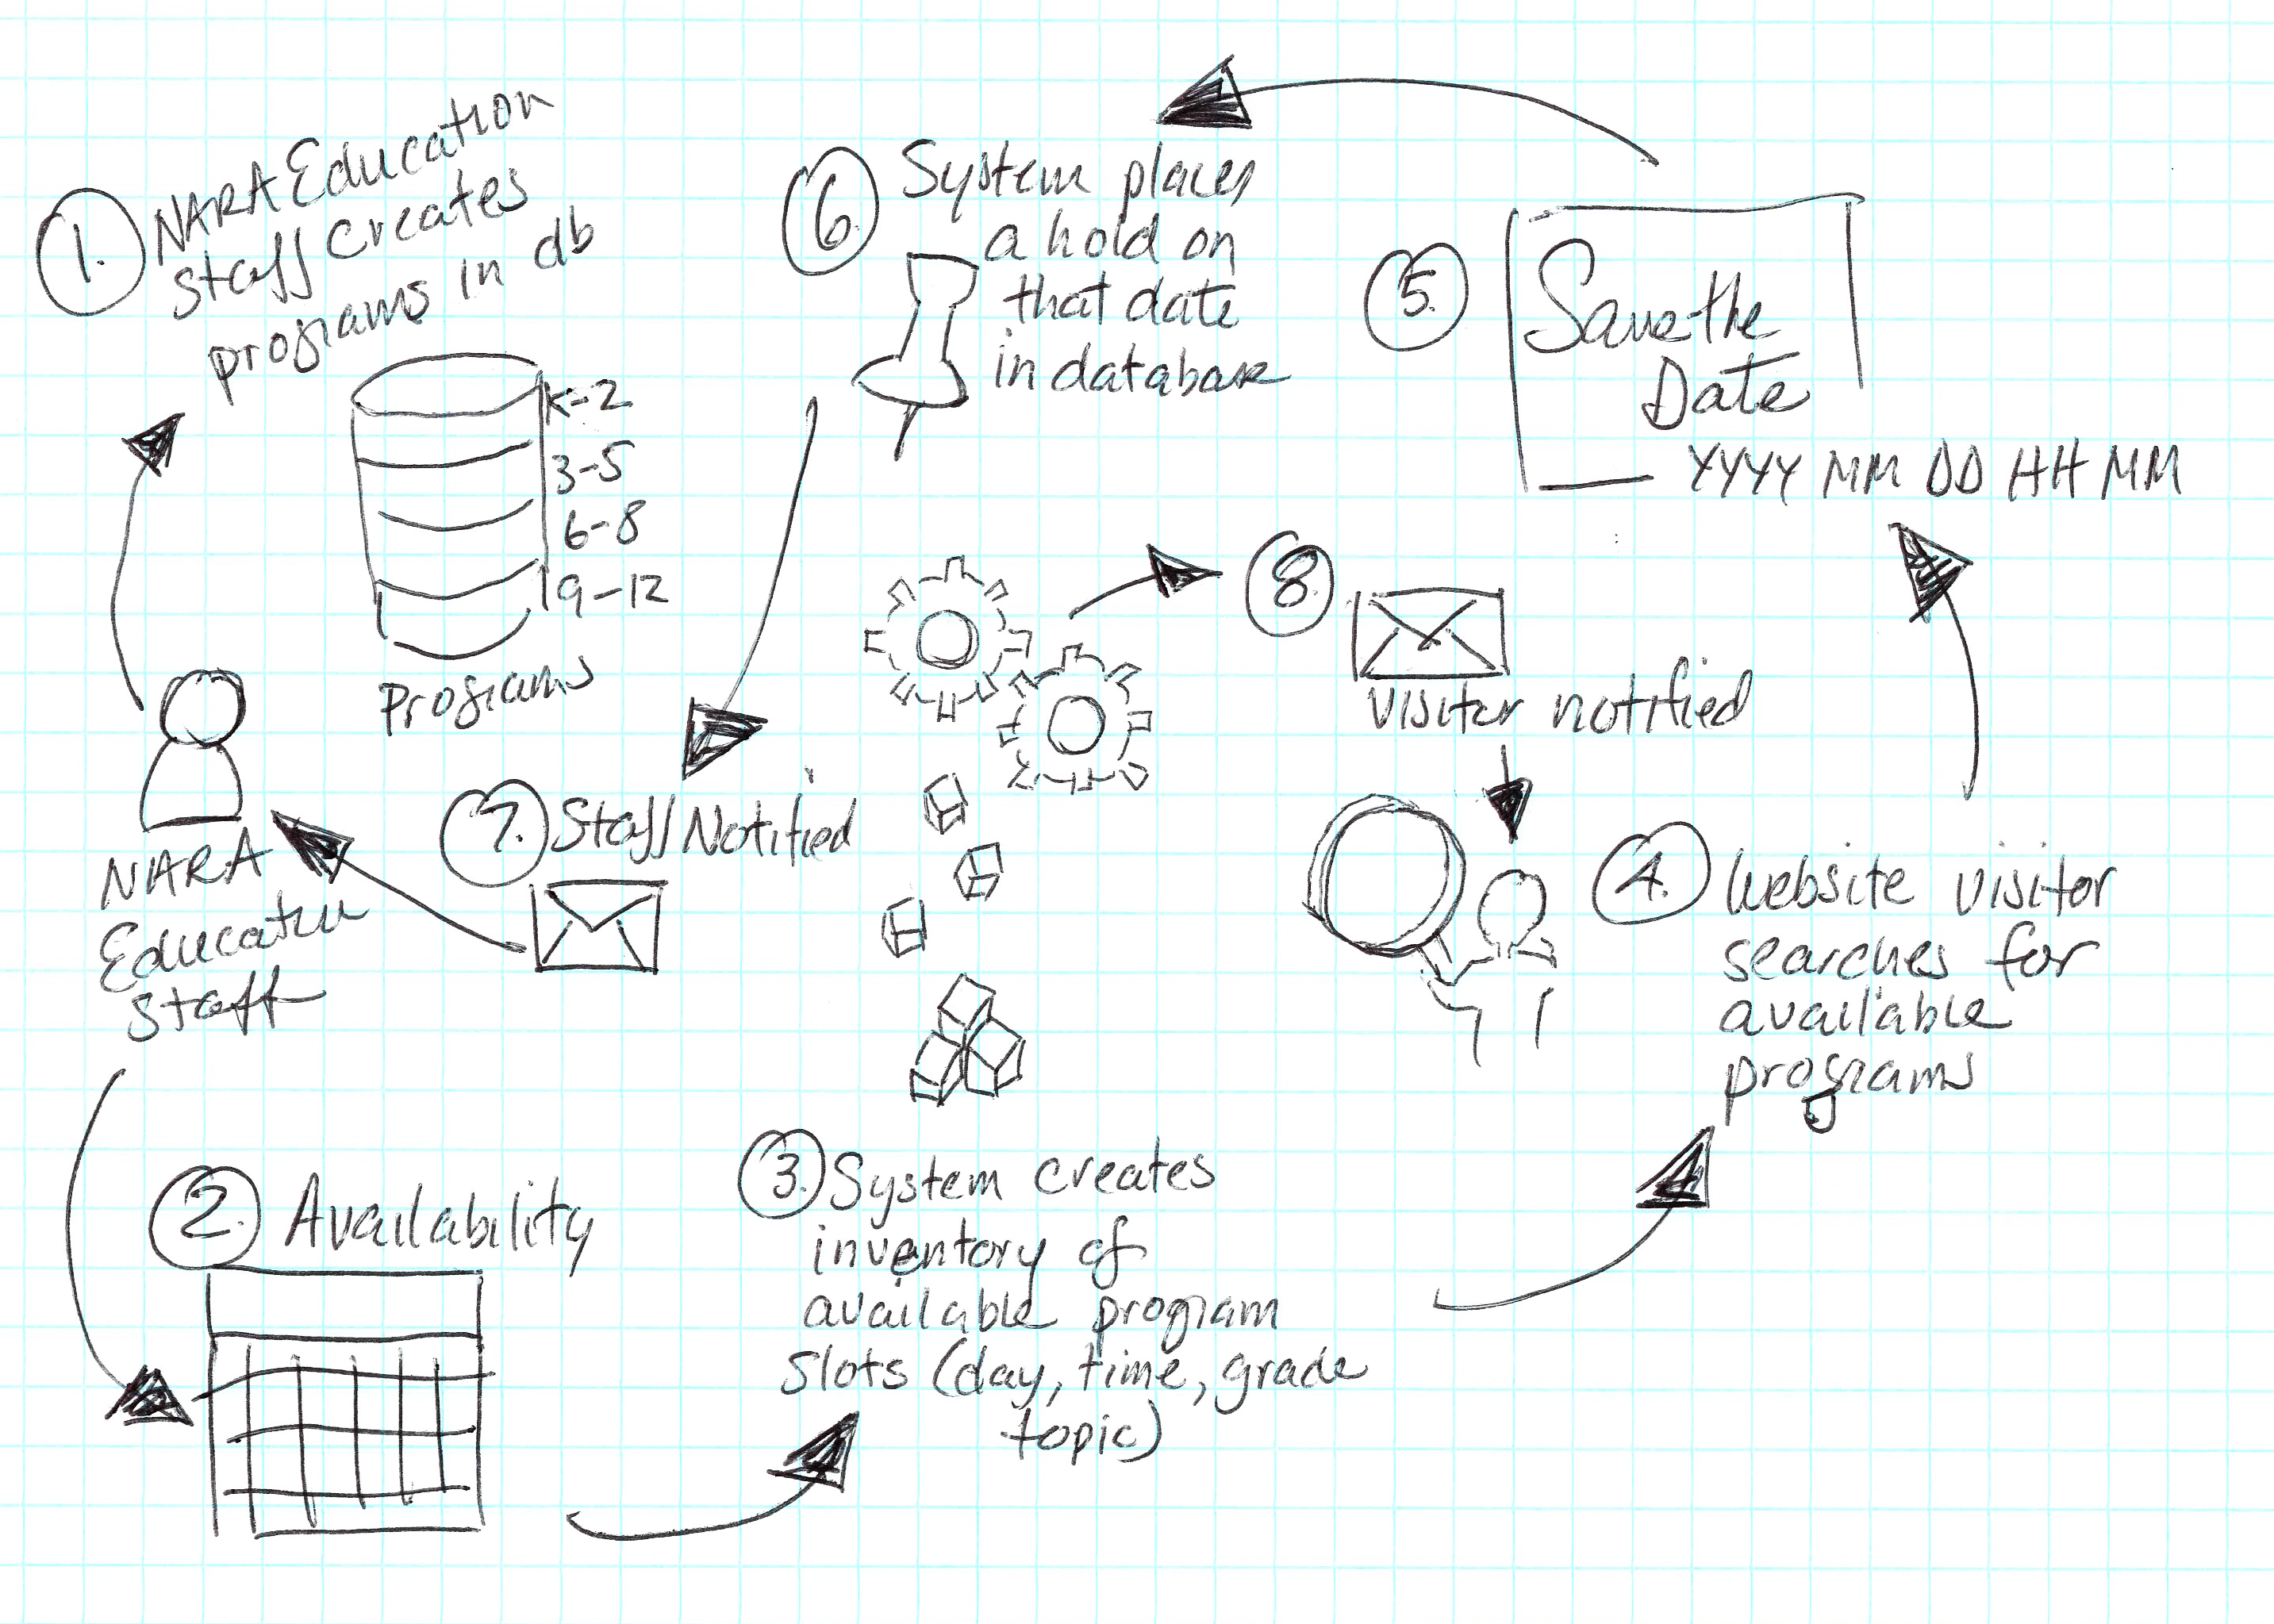 1. NARA Education
staff creates
programs in db
K-2
3-5
6-8
9-12
Programs
NARA
Education
Staff
2. Availability
3. System creates
inventory of
available program
slots (day, time, grade
topic)
4. Website visitor
searches for
available
programs
5. Save the
Date
YYYY MM DD HH MM
6. System places
a hold on
that date
in database
7. Staff Notified
8.
visitor notified